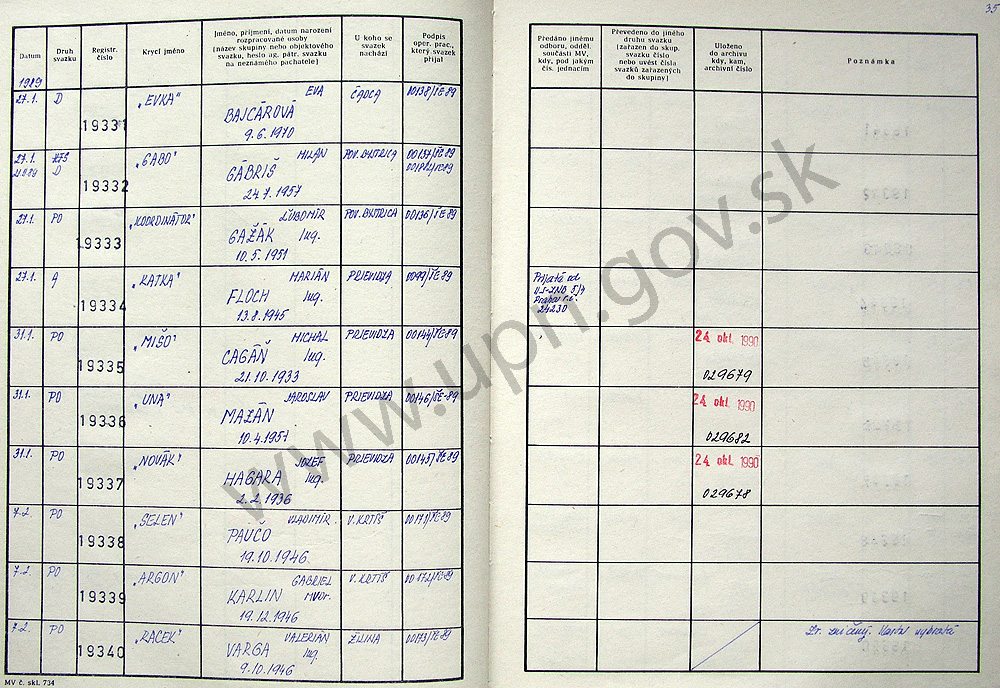 35
Datum
Druh svazku
Registr. číslo
Krycí jméno
Jméno, příjmení, datum narození
rozpracované osoby
(název skupiny nebo objektového
svazku, heslo ag. pátr. svazku
na neznámého pachatele)
U koho se
svazek
nachází
Podpis
oper. prac.,
který svazek
přijal
Předáno jinému
odboru, odděl.
součásti MV,
kdy, pod jakým
čís. jednacím
Převedeno do jiného
druhu svazku
(zařazen do skup.
svazku číslo
nebo uvést čísla
svazků zařazených
do skupiny)
Uloženo
do archivu
kdy, kam,
archivní číslo
Poznámka
1989
27.1. D 19331 „EVKA" EVA ČADCA 00138/ŠE-89
BAJCÁROVÁ
9.6.1970
27.1. D 19332 „GABO" MILAN POV. BYSTRICA 00137/ŠE-89
GÁBRIŠ
24.7.1957
27.1. PO 19333 „KOORDINÁTOR" ĽUBOMÍR POV. BYSTRICA 00136/ŠE-89
GAŽÁK Ing.
10.5.1951
27.1. A 19334 „KATKA" MARIÁN PRIEVIDZA 0099/ŠE-89
FLOCH Ing.
13.8.1945
Prijatá od
Praha r.č.
24230
31.1. PO 19335 „MIŠO" MICHAL PRIEVIDZA 00144/ŠE-89
CAGÁŇ Ing.
21.10.1933
24. okt. 1990
029679
31.1. PO 19336 „UNA" JAROSLAV PRIEVIDZA 00146/ŠE-89
MAZÁN
10.4.1957
24. okt. 1990
029682
31.1. PO 19337 „NOVÁK" JOZEF PRIEVIDZA 00145/ŠE-89
HAGARA Ing.
2.2.1936
24. okt. 1990
029678
7.2. PO 19338 „SELEN" VLADIMÍR V. KRTÍŠ 00171/ŠE-89
PAUČO
19.10.1946
7.2. PO 19339 „ARGON" GABRIEL V. KRTÍŠ 00172/ŠE-89
KARLIN MVDr.
19.12.1946
7.2. PO 19340 „RACEK" VALERIÁN ŽILINA 00173/ŠE-89
VARGA Ing.
9.10.1946
MV č. skl. 734
www.upn.gov.sk